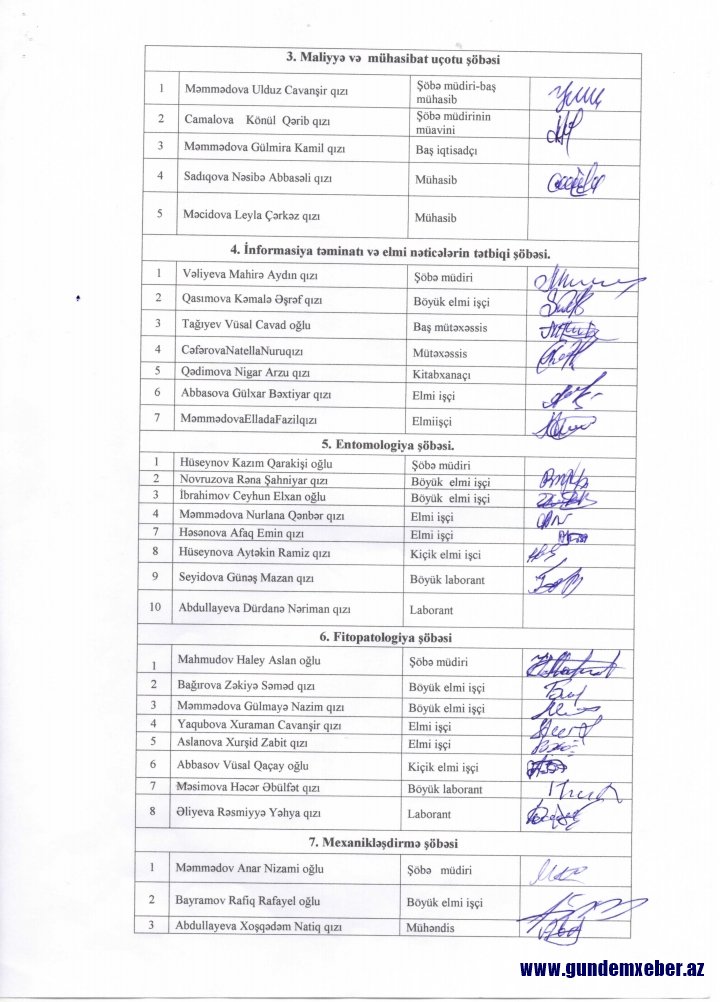 3. Maliyyə və mühasibat uçotu şöbəsi
1 Məmmədova Ulduz Cavanşir qızı Şöbə müdiri-baş mühasib
2 Camalova Könül Qərib qızı Şöbə müdirinin müavini
3 Məmmədova Gülmira Kamil qızı Baş iqtisadçı
4 Sadıqova Nəsibə Abbasəli qızı Mühasib
5 Məcidova Leyla Çərkəz qızı Mühasib
4. İnformasiya təminatı və elmi nəticələrin tətbiqi şöbəsi.
1 Vəliyeva Mahirə Aydın qızı Şöbə müdiri
2 Qasımova Kəmalə Əşrəf qızı Böyük elmi işçi
3 Tağıyev Vüsal Cavad oğlu Baş mütəxəssis
4 CəfərovaNatellaNuruqızı Mütəxəssis
5 Qədimova Nigar Arzu qızı Kitabxanaçı
6 Abbasova Gülxar Bəxtiyar qızı Elmi işçi
7 MəmmədovaElladaFazilqızı Elmiişçi
5. Entomologiya şöbəsi.
1 Hüseynov Kazım Qarakişi oğlu Şöbə müdiri
2 Novruzova Rəna Şahniyar qızı Böyük elmi işçi
3 İbrahimov Ceyhun Elxan oğlu Böyük elmi işçi
4 Məmmədova Nurlana Qənbər qızı Elmi işçi
7 Həsənova Afaq Emin qızı Elmi işçi
8 Hüseynova Aytəkin Ramiz qızı Kiçik elmi işci
9 Seyidova Günəş Mazan qızı Böyük laborant
10 Abdullayeva Dürdanə Nəriman qızı Laborant
6. Fitopatologiya şöbəsi
1 Mahmudov Haley Aslan oğlu Şöbə müdiri
2 Bağırova Zəkiyə Səməd qızı Böyük elmi işçi
3 Məmmədova Gülmayə Nazim qızı Böyük elmi işçi
4 Yaqubova Xuraman Cavanşir qızı Elmi işçi
5 Aslanova Xurşid Zabit qızı Elmi işçi
6 Abbasov Vüsal Qaçay oğlu Kiçik elmi işçi
7 Məsimova Həcər Əbülfət qızı Böyük laborant
8 Əliyeva Rəsmiyyə Yəhya qızı Laborant
7. Mexanikləşdirmə şöbəsi
1 Məmmədov Anar Nizami oğlu Şöbə müdiri
2 Bayramov Rafiq Rafayel oğlu Böyük elmi işçi
3 Abdullayeva Xoşqədəm Natiq qızı Mühəndis
www.gundemxeber.az